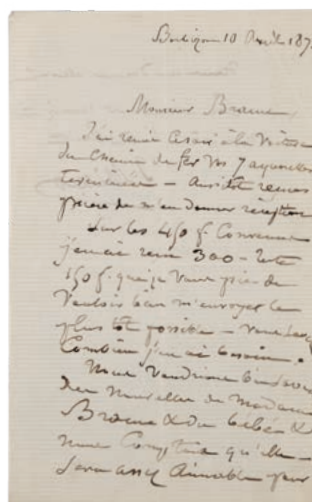 10 Avril 187
Monsieur Braun
J'ai remis ce soir à la
du Chemin de fer vos 7 aquarelles
terminées – Aussitôt
prière de m'en donner réception
Sur les 450 f. Convenus
j'ai reçu 300 – reste
150 f. que je vous prie de
Vouloir bien m'envoyer le
plus tôt possible – vous savez
Combien j'en ai besoin.
Nous Voudrions bien
des nouvelles de Madame
du bébé &
nous Comptons qu'elle
sera assez Aimable pour